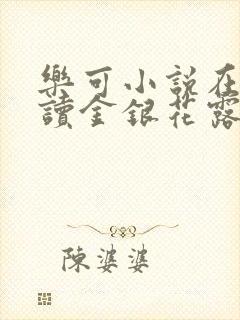 樂可小說在
讀金銀花露
陳婆婆